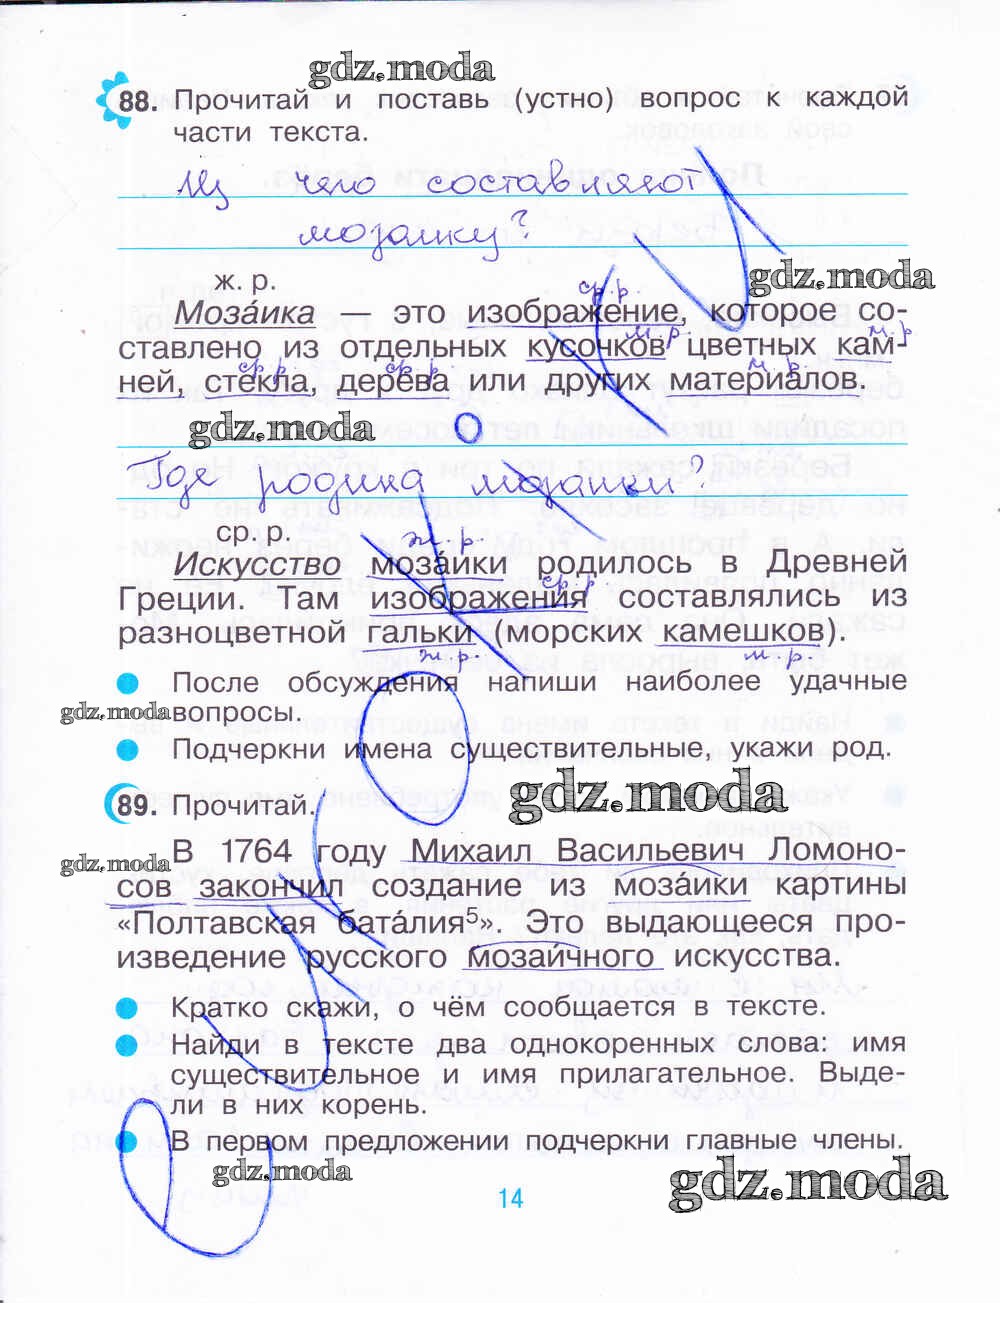 gdz.moda
88. Прочитай и поставь (устно) вопрос к каждой
части текста.
Из чего составляют
мозаику?
gdz.moda
ж. р.
ср. р.
Моза́ика — это изображение, которое со-
м. р.
м. р.
ставлено из отдельных кусочков цветных кам-
ср. р.
ср. р.
м. р.
ней, стекла, дерева или других материалов.
gdz.moda
Где родина мозаики?
ср. р.
ж. р.
Искусство моза́ики родилось в Древней
ср. р
Греции. Там изображения составлялись из
разноцветной гальки (морских камешков).
ж. р.
м. р.
После обсуждения напиши наиболее удачные
gdz.moda
вопросы.
Подчеркни имена существительные, укажи род.
gdz.moda
89. Прочитай.
В 1764 году Михаил Васильевич Ломоно-
gdz.moda
сов закончил создание из моза́ики картины
«Полтавская бата́лия⁵». Это выдающееся про-
изведение русского мозаи́чного искусства.
Кратко скажи, о чём сообщается в тексте.
Найди в тексте два однокоренных слова: имя
существительное и имя прилагательное. Выде-
ли в них корень.
В первом предложении подчеркни главные члены.
gdz.moda
gdz.moda
14